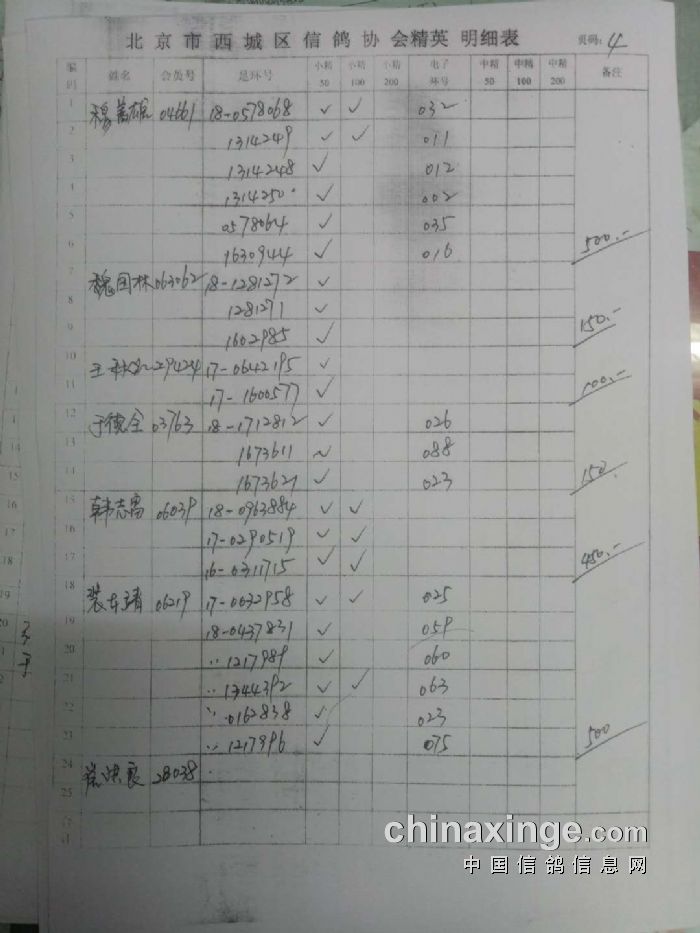 北京市西城区信鸽协会精英 明细表 页码: 4
编码 姓名 会员号 足环号 小精50 小精100 小精200 电子环号 中精50 中精100 中精200 备注
1 04661 18-0578068 ✓ ✓ 032
2 1314249 ✓ ✓ 011
3 1314248 ✓ 012
4 1314250 ✓ 002
5 0578064 ✓ 035
6 1630944 ✓ 016 500.-
7 魏国林 063062 18-1281272 ✓
8 1281271 ✓
9 1602985 ✓ 150.-
10 王 29424 17-0642195 ✓
11 17-1600577 ✓ 100.-
12 于德全 03763 18-1712812 ✓ 026
13 1673611 ✓ 088
14 1673621 ✓ 023 150
15 韩志富 06039 18-0963884 ✓ ✓
16 17-0290519 ✓ ✓
17 16-0311715 ✓ ✓ 450.-
18 06219 17-0632958 ✓ ✓ 025
19 18-0437831 ✓ 059
20 〃 1217989 ✓ 060
21 〃 1344392 ✓ ✓ 063
22 〃 0162838 ✓ 023
23 〃 1217996 ✓ 075 500
24 28038
25
合计
chinaxinge.com
中国信鸽信息网